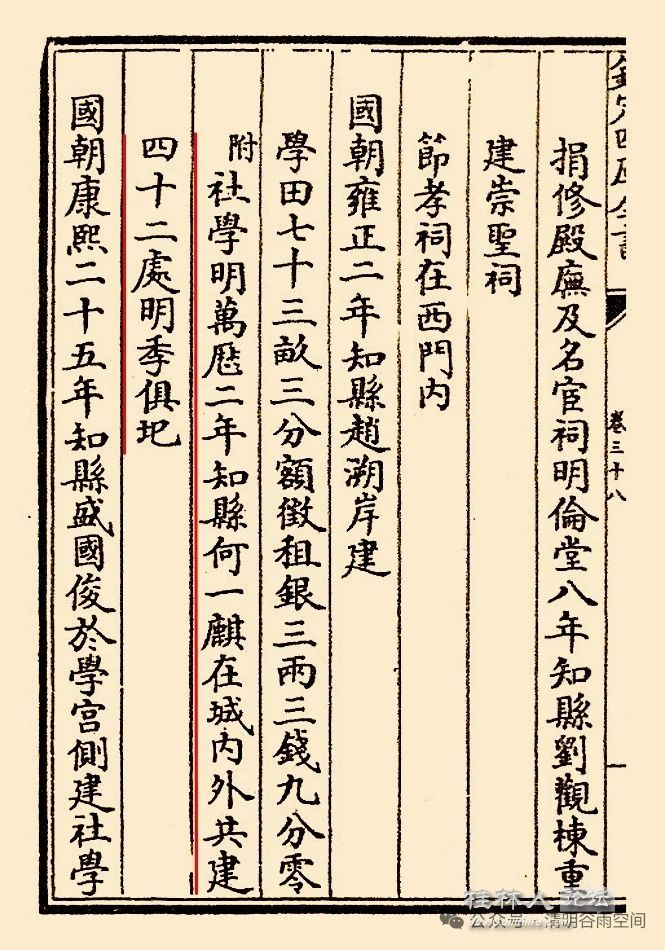 欽定四庫全書
卷三十八
捐修殿廡及名宦祠明倫堂八年知縣劉觀棟重
建崇聖祠
節孝祠在西門内
國朝雍正二年知縣趙溯岸建
學田七十三畝三分額徵租銀三兩三錢九分零
附社學明萬厯二年知縣何一麒在城内外共建
四十二處明季俱圯
國朝康熙二十五年知縣盛國俊於學宮側建社學
桂林人论坛
公众号·清明谷雨空间